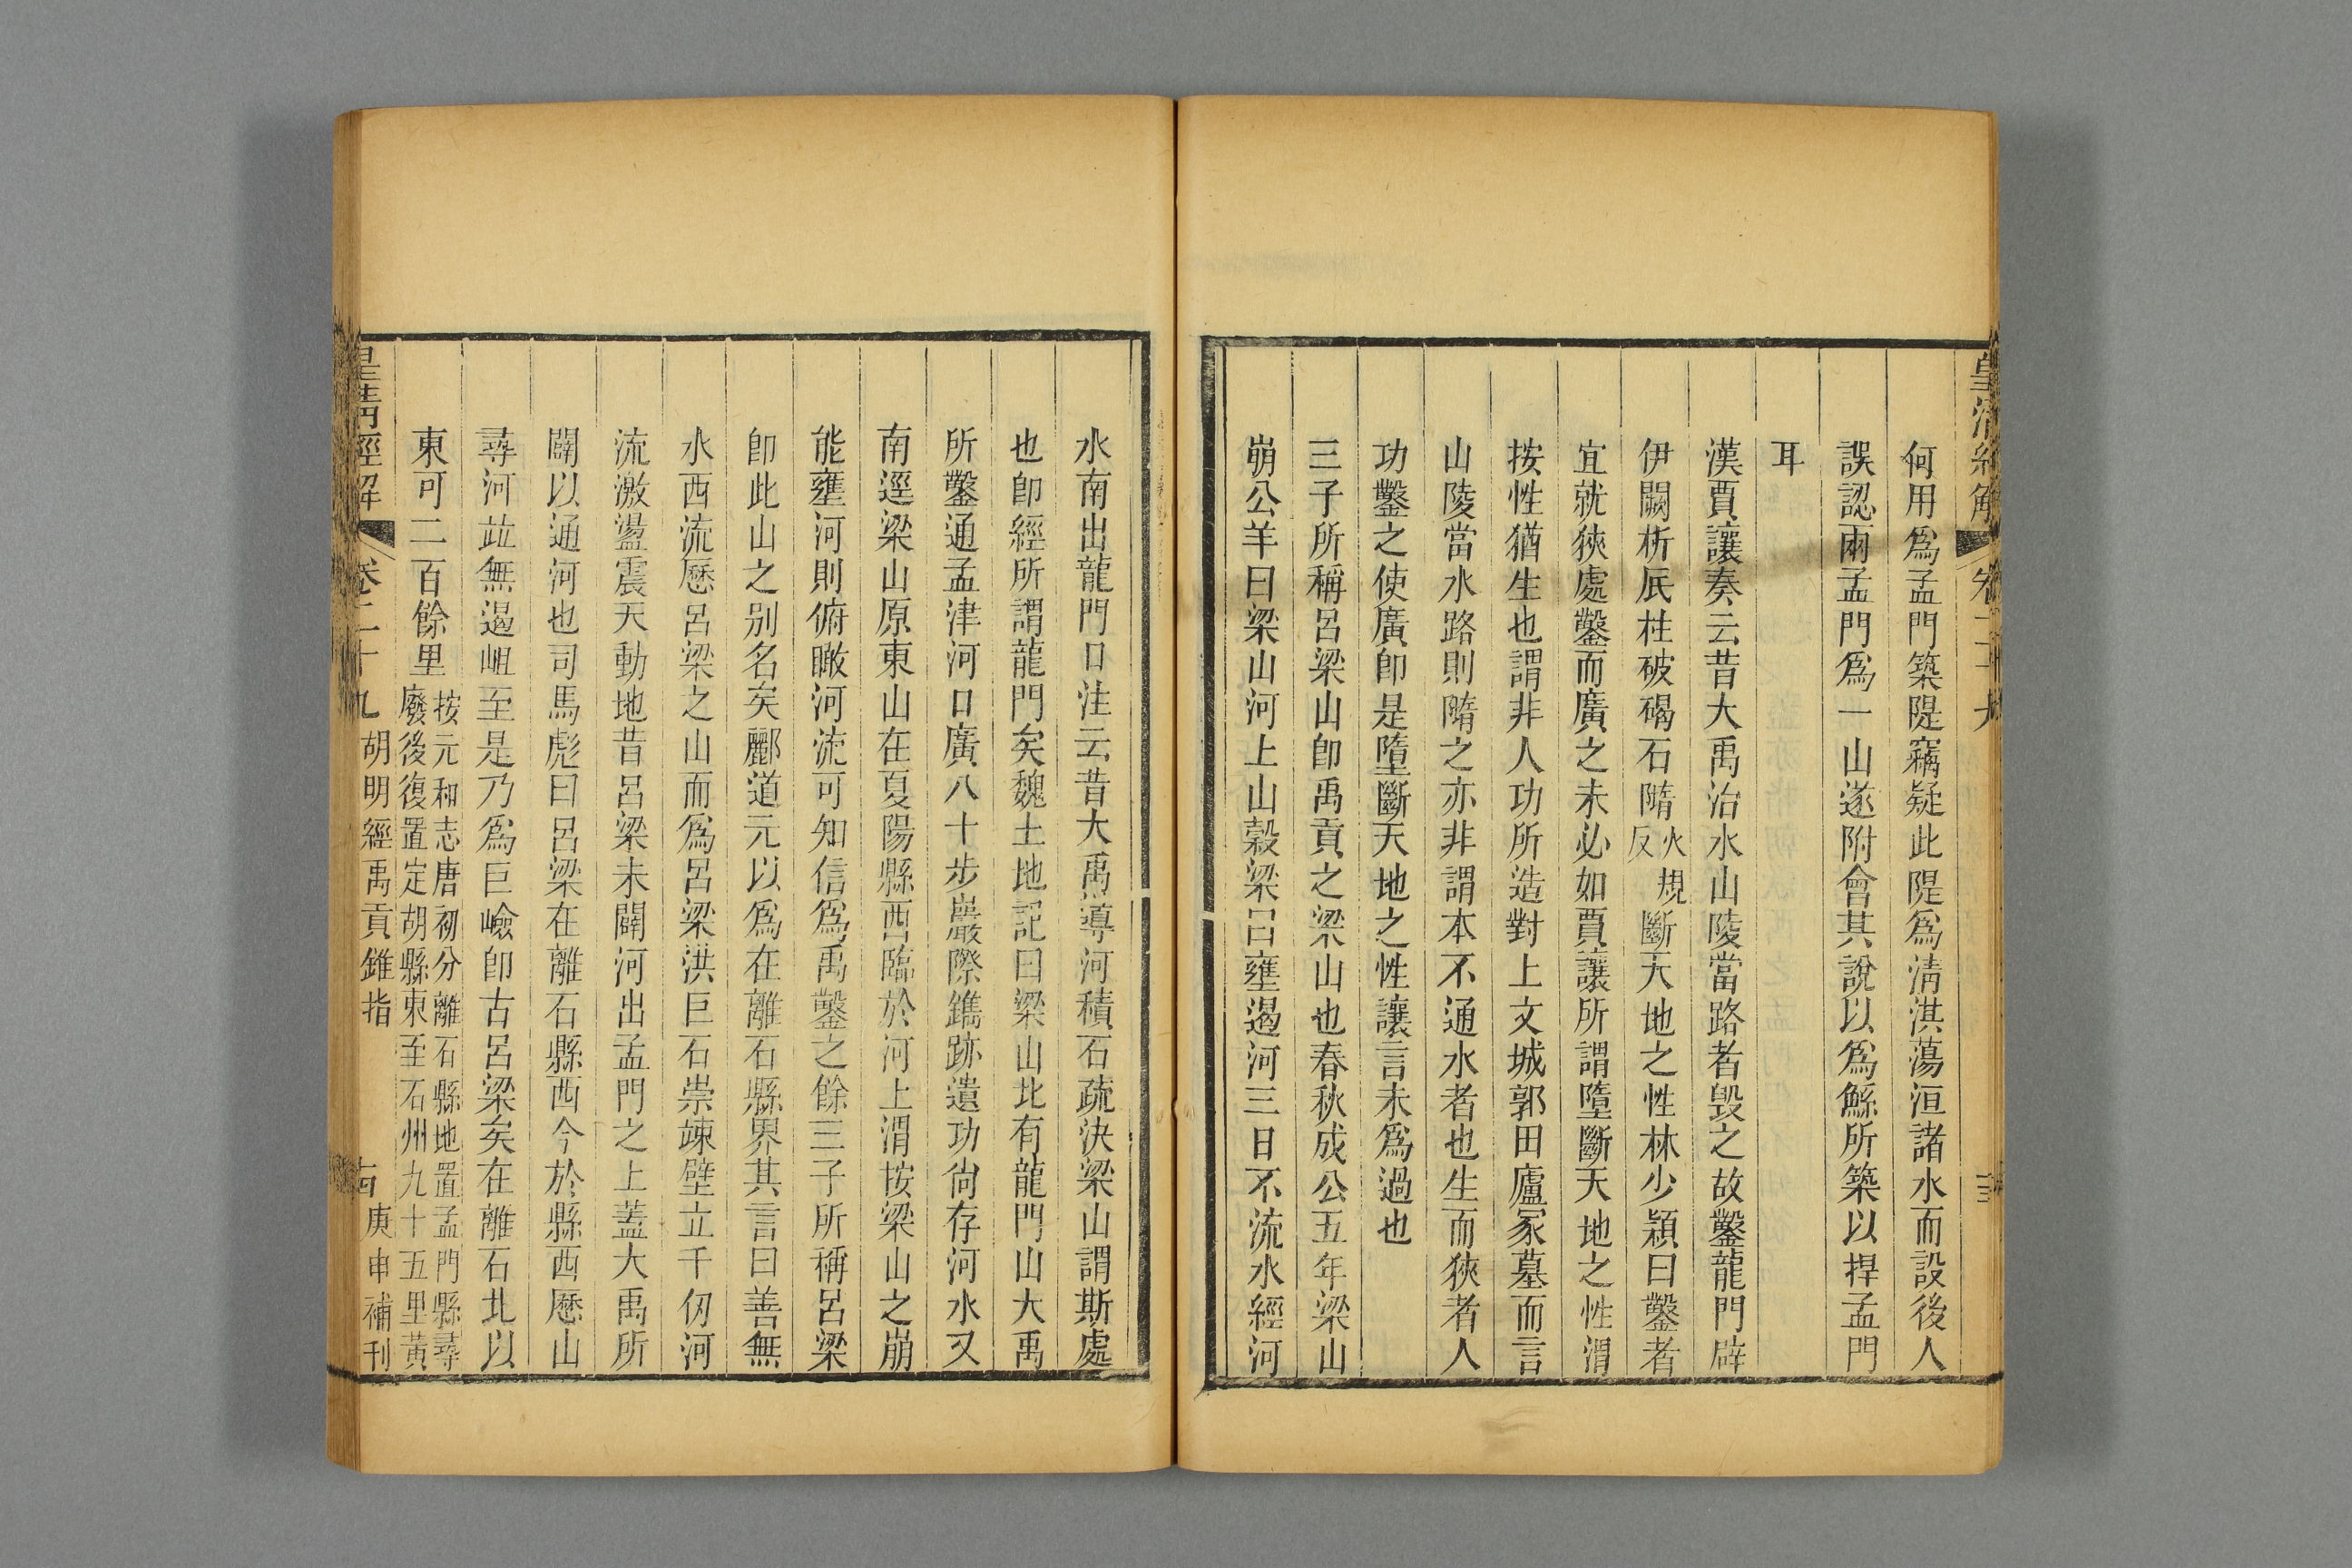 皇清經解 卷二十九 十三
何用爲孟門築隄竊疑此隄爲淸淇蕩洹諸水而設後人
誤認兩孟門爲一山遂附會其說以爲鯀所築以捍孟門
耳
漢賈讓奏云昔大禹治水山陵當路者毀之故鑿龍門辟
伊闕析厎柱破碣石隋火規反斷天地之性林少穎曰鑿者
宜就狹處鑿而廣之未必如賈讓所謂墮斷天地之性渭
按性猶生也謂非人功所造對上文城郭田廬冢墓而言
山陵當水路則隋之亦非謂本不通水者也生而狹者人
功鑿之使廣卽是墮斷天地之性讓言未爲過也
三子所稱呂梁山卽禹貢之梁山也春秋成公五年梁山
崩公羊曰梁山河上山穀梁曰壅遏河三日不流水經河
水南出龍門口注云昔大禹導河積石疏決梁山謂斯處
也卽經所謂龍門矣魏土地記曰梁山北有龍門山大禹
所鑿通孟津河口廣八十步巖際鐫跡遺功尙存河水又
南逕梁山原東山在夏陽縣西臨於河上渭按梁山之崩
能壅河則俯瞰河流可知信爲禹鑿之餘三子所稱呂梁
卽此山之别名矣酈道元以爲在離石縣界其言曰善無
水西流歷呂梁之山而爲呂梁洪巨石崇竦壁立千仞河
流激盪震天動地昔呂梁未闢河出孟門之上蓋大禹所
闢以通河也司馬彪曰呂梁在離石縣西今於縣西歷山
尋河竝無過岨至是乃爲巨嶮卽古呂梁矣在離石北以
東可二百餘里按元和志唐初分離石縣地置孟門縣尋廢後復置定胡縣東至石州九十五里黃
皇淸經解 卷二十九 胡明經禹貢錐指 十四 庚申補刊